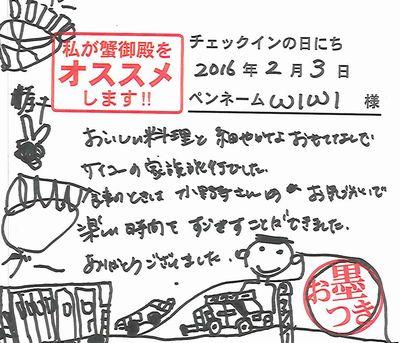 私が蟹御殿を
オススメ
します!!
チェックインの日にち
2016年2月3日
ペンネーム WIWI 様
おいしい料理と細やかなおもてなしで
サイコーの家族旅行でした。
食事のときは小野寺さんの お気づかいで
楽しい時間を すごすことができました。
ありがとうございました。
グー
お墨
つき